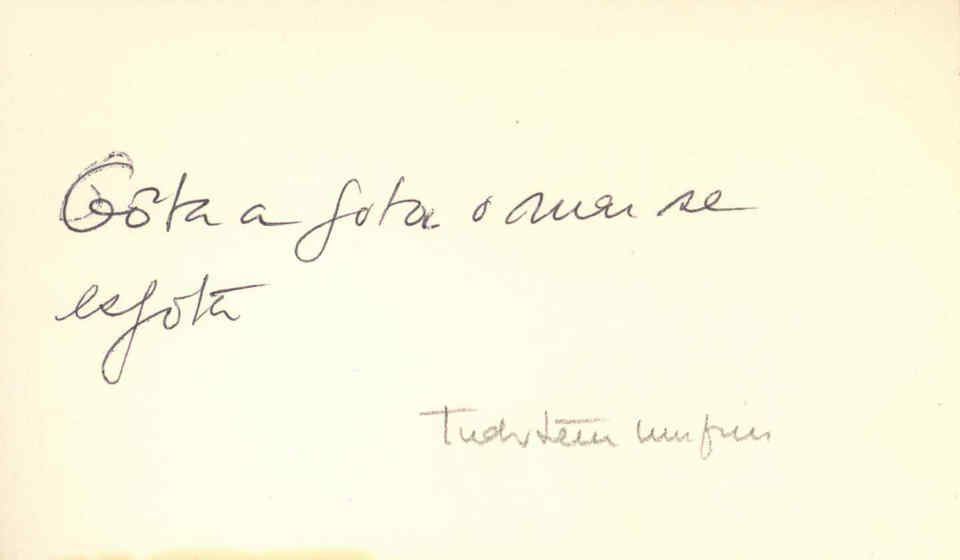 Gôta a gota o mar se
esgota
Tudo tem um fim